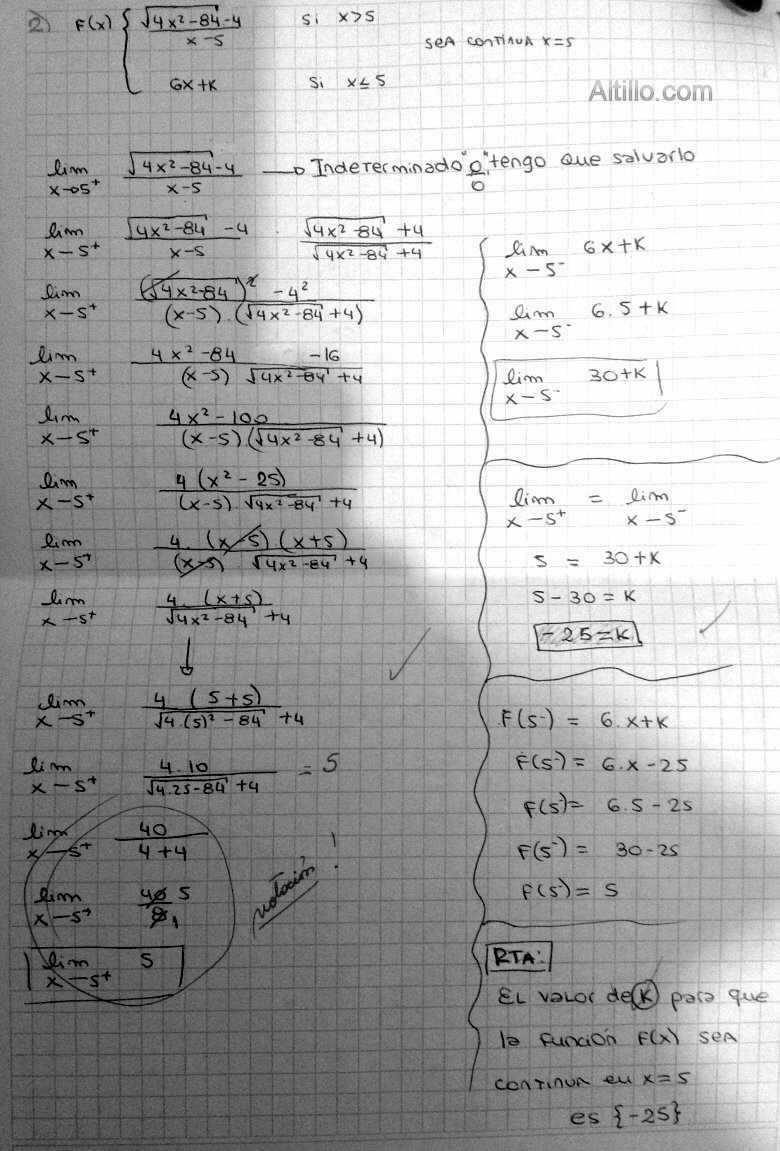 2) F(x) { √4x²-84 -4 / x-5 si x>5
sea continua x=5
6x+K si x≤5
Altillo.com
lim x→5⁺ √4x²-84 -4 / x-5 → Indeterminado "0/0" tengo que salvarlo
lim x-5⁺ √4x²-84 -4 / x-5 · √4x²-84 +4 / √4x²-84 +4
lim x-5⁺ (√4x²-84)² -4² / (x-5).(√4x²-84 +4)
lim x-5⁺ 4x²-84 -16 / (x-5) √4x²-84 +4
lim x-5⁺ 4x²-100 / (x-5)(√4x²-84 +4)
lim x-5⁺ 4(x²-25) / (x-5).√4x²-84 +4
lim x-5⁺ 4.(x-5).(x+5) / (x-5) √4x²-84 +4
lim x-5⁺ 4.(x+5) / √4x²-84 +4
lim x-5⁺ 4(5+5) / √4.(5)²-84 +4
lim x-5⁺ 4.10 / √4.25-84 +4 = 5
lim x-5⁺ 40 / 4+4
lim x-5⁺ 40 5 / 8 1
lim x-5⁺ 5
notación!
lim x-5⁻ 6x+K
lim x-5⁻ 6.5+K
lim x-5⁻ 30+K
lim x-5⁺ = lim x-5⁻
5 = 30+K
5-30=K
-25=K
F(5⁻) = 6.x+K
F(5⁻) = 6.x-25
F(5⁻) = 6.5-25
F(5⁻) = 30-25
F(5⁻) = 5
RTA:
El valor de K para que
la función F(x) sea
continua en x=5
es {-25}